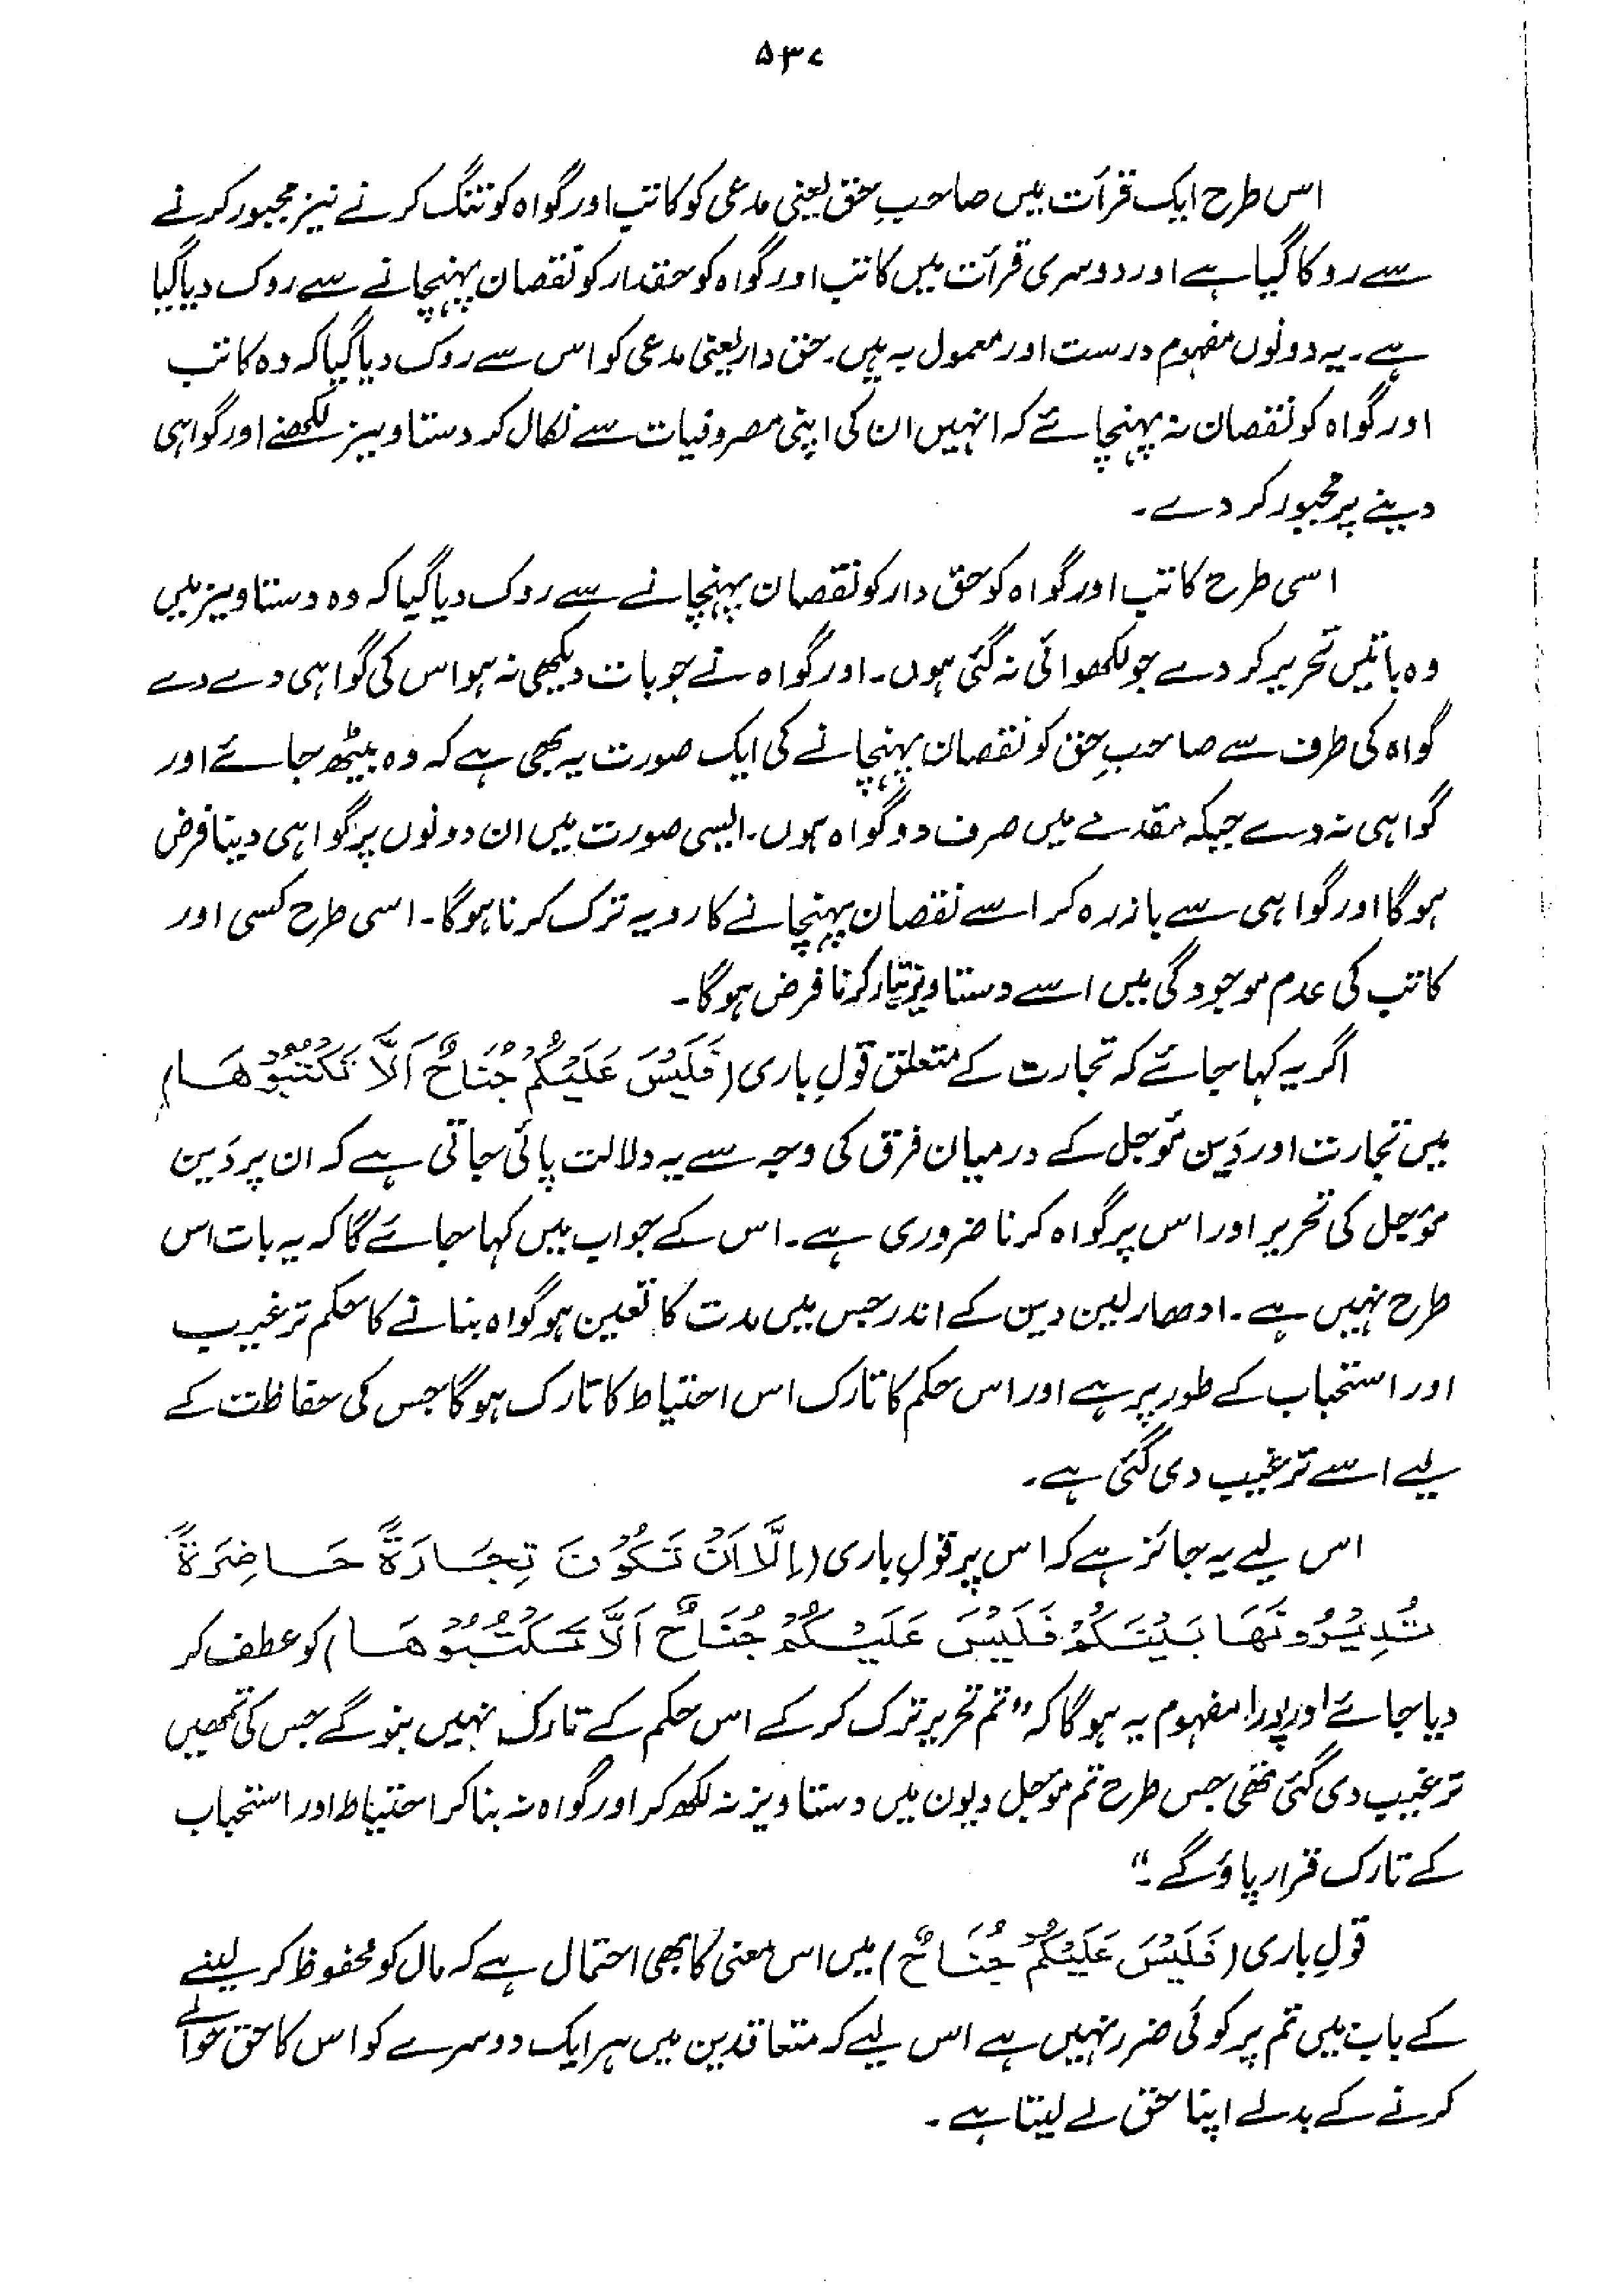 ۵۳۷
اس طرح ایک قرأت میں صاحبِ حق یعنی مدعی کو کاتب اور گواہ کو تنگ کرنے نیز مجبور کرنے
سے روکا گیا ہے اور دوسری قرأت میں کاتب اور گواہ کو حقدار کو نقصان پہنچانے سے روک دیا گیا
ہے۔ یہ دونوں مفہوم درست اور معمول بہ ہیں۔ حق دار یعنی مدعی کو اس سے روک دیا گیا کہ وہ کاتب
اور گواہ کو نقصان نہ پہنچائے کہ انہیں ان کی اپنی مصروفیات سے نکال کر دستاویز لکھنے اور گواہی
دینے پر مجبور کر دے۔
اسی طرح کاتب اور گواہ کو حق دار کو نقصان پہنچانے سے روک دیا گیا کہ وہ دستاویز میں
وہ باتیں تحریر کر دے جو لکھوائی نہ گئی ہوں۔ اور گواہ نے جو بات دیکھی نہ ہو اس کی گواہی دے دے
گواہ کی طرف سے صاحبِ حق کو نقصان پہنچانے کی ایک صورت یہ بھی ہے کہ وہ بیٹھ جائے اور
گواہی نہ دے جبکہ مقدمے میں صرف دو گواہ ہوں۔ ایسی صورت میں ان دونوں پر گواہی دینا فرض
ہوگا اور گواہی سے باز رہ کر اسے نقصان پہنچانے کا رویہ ترک کرنا ہوگا۔ اسی طرح کسی اور
کاتب کی عدم موجودگی میں اسے دستاویز تیار کرنا فرض ہوگا۔
اگر یہ کہا جائے کہ تجارت کے متعلق قولِ باری (فَلَیْسَ عَلَیْکُمْ جُنَاحٌ اَلَّا تَکْتُبُوْهَا)
میں تجارت اور دَین مؤجل کے درمیان فرق کی وجہ سے یہ دلالت پائی جاتی ہے کہ ان پر دَین
مؤجل کی تحریر اور اس پر گواہ کرنا ضروری ہے۔ اس کے جواب میں کہا جائے گا کہ یہ بات اس
طرح نہیں ہے۔ ادھار لین دین کے اندر جس میں مدت کا تعین ہو گواہ بنانے کا حکم ترغیب
اور استحباب کے طور پر ہے اور اس حکم کا تارک اس احتیاط کا تارک ہوگا جس کی حفاظت کے
لیے اسے ترغیب دی گئی ہے۔
اس لیے یہ جائز ہے کہ اس پر قولِ باری (اِلَّا اَنْ تَکُوْنَ تِجَارَةً حَاضِرَةً
تُدِیْرُوْنَهَا بَیْنَکُمْ فَلَیْسَ عَلَیْکُمْ جُنَاحٌ اَلَّا تَکْتُبُوْهَا) کو عطف کر
دیا جائے اور پورا مفہوم یہ ہوگا کہ "تم تحریر ترک کر کے اس حکم کے تارک نہیں بنو گے جس کی تمھیں
ترغیب دی گئی تھی جس طرح تم مؤجل دیون میں دستاویز نہ لکھ کر اور گواہ نہ بنا کر احتیاط اور استحباب
کے تارک قرار پاؤ گے۔"
قولِ باری (فَلَیْسَ عَلَیْکُمْ جُنَاحٌ) میں اس معنی کا بھی احتمال ہے کہ مال کو محفوظ کر لینے
کے باب میں تم پر کوئی ضرر نہیں ہے اس لیے کہ متعاقدین میں ہر ایک دوسرے کو اس کا حق حوالے
کرنے کے بدلے اپنا حق لے لیتا ہے۔